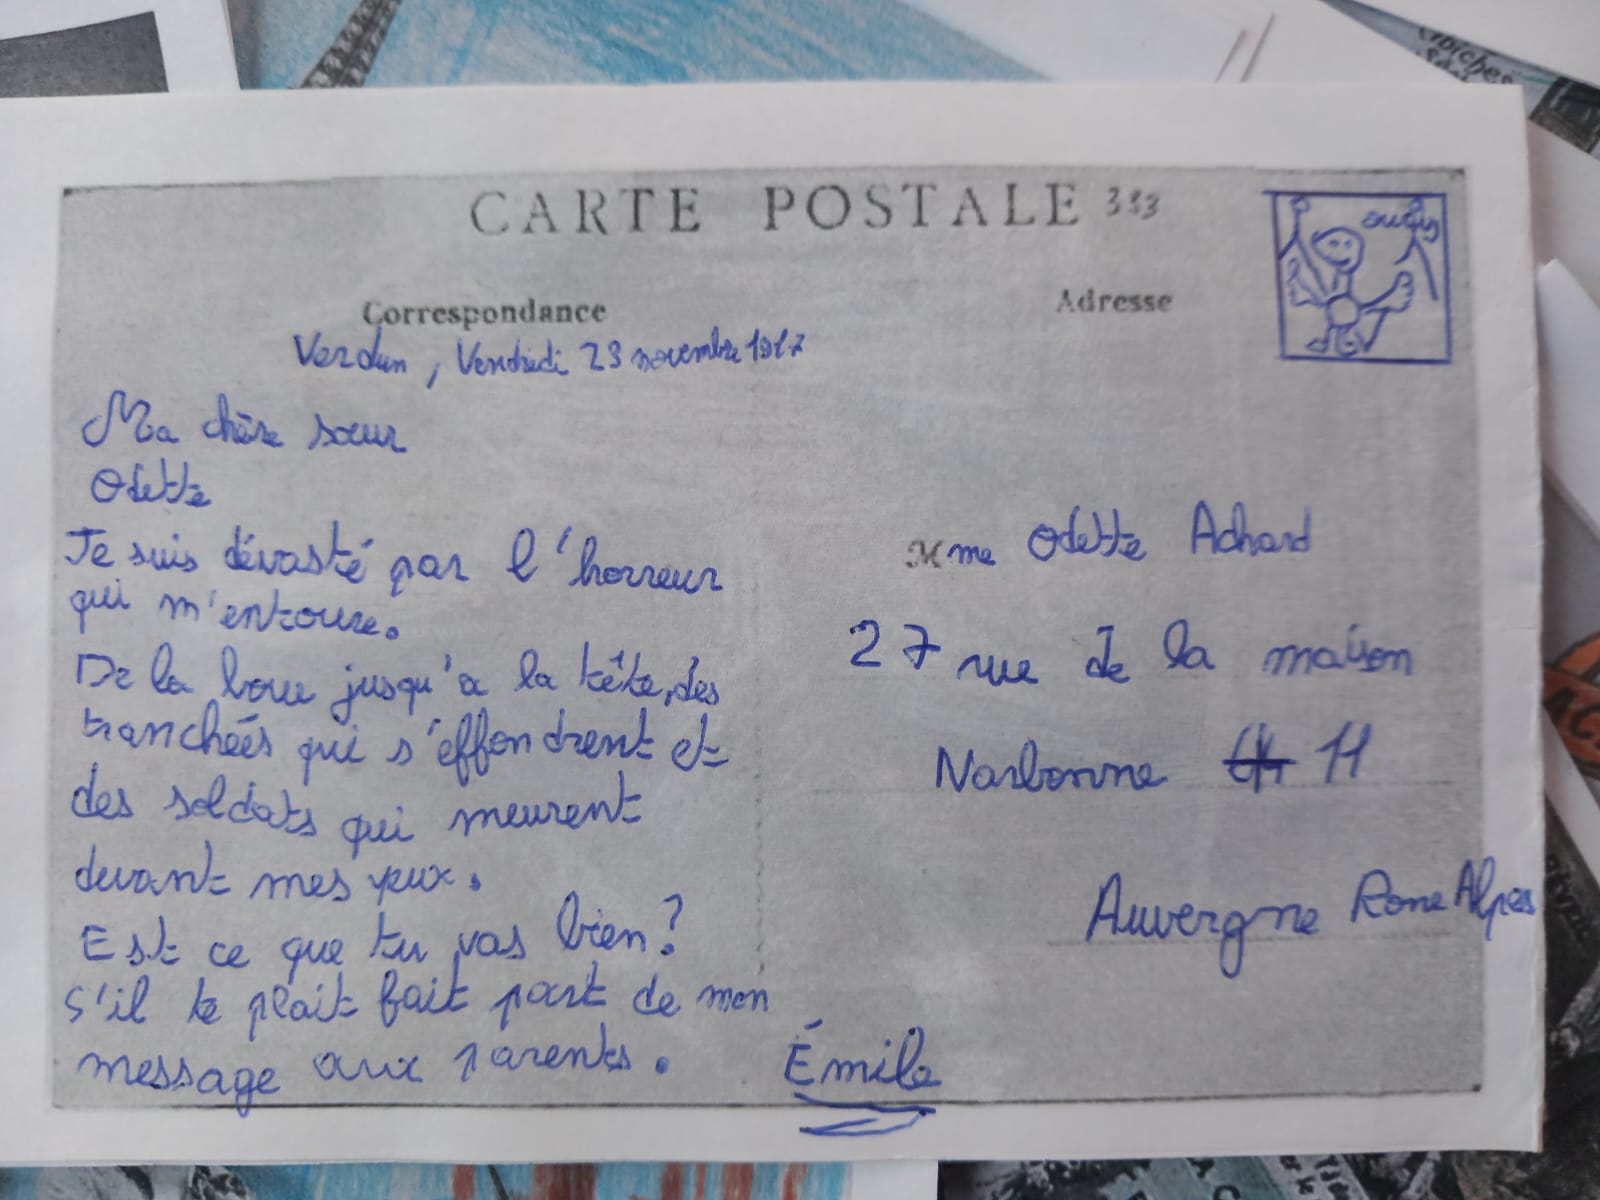 CARTE POSTALE 313
Correspondance
Adresse
Verdun, Vendredi 23 novembre 1917
Ma chère sœur
Odette
Je suis dévasté par l'horreur
qui m'entoure.
De la boue jusqu'a la tête, des
tranchées qui s'effondrent et
des soldats qui meurent
devant mes yeux.
Est ce que tu vas bien?
S'il te plait fait part de mon
message aux parents.
Émile
Mme Odette Achard
27 rue de la maison
Narbonne 11
Auvergne Rone Alpes